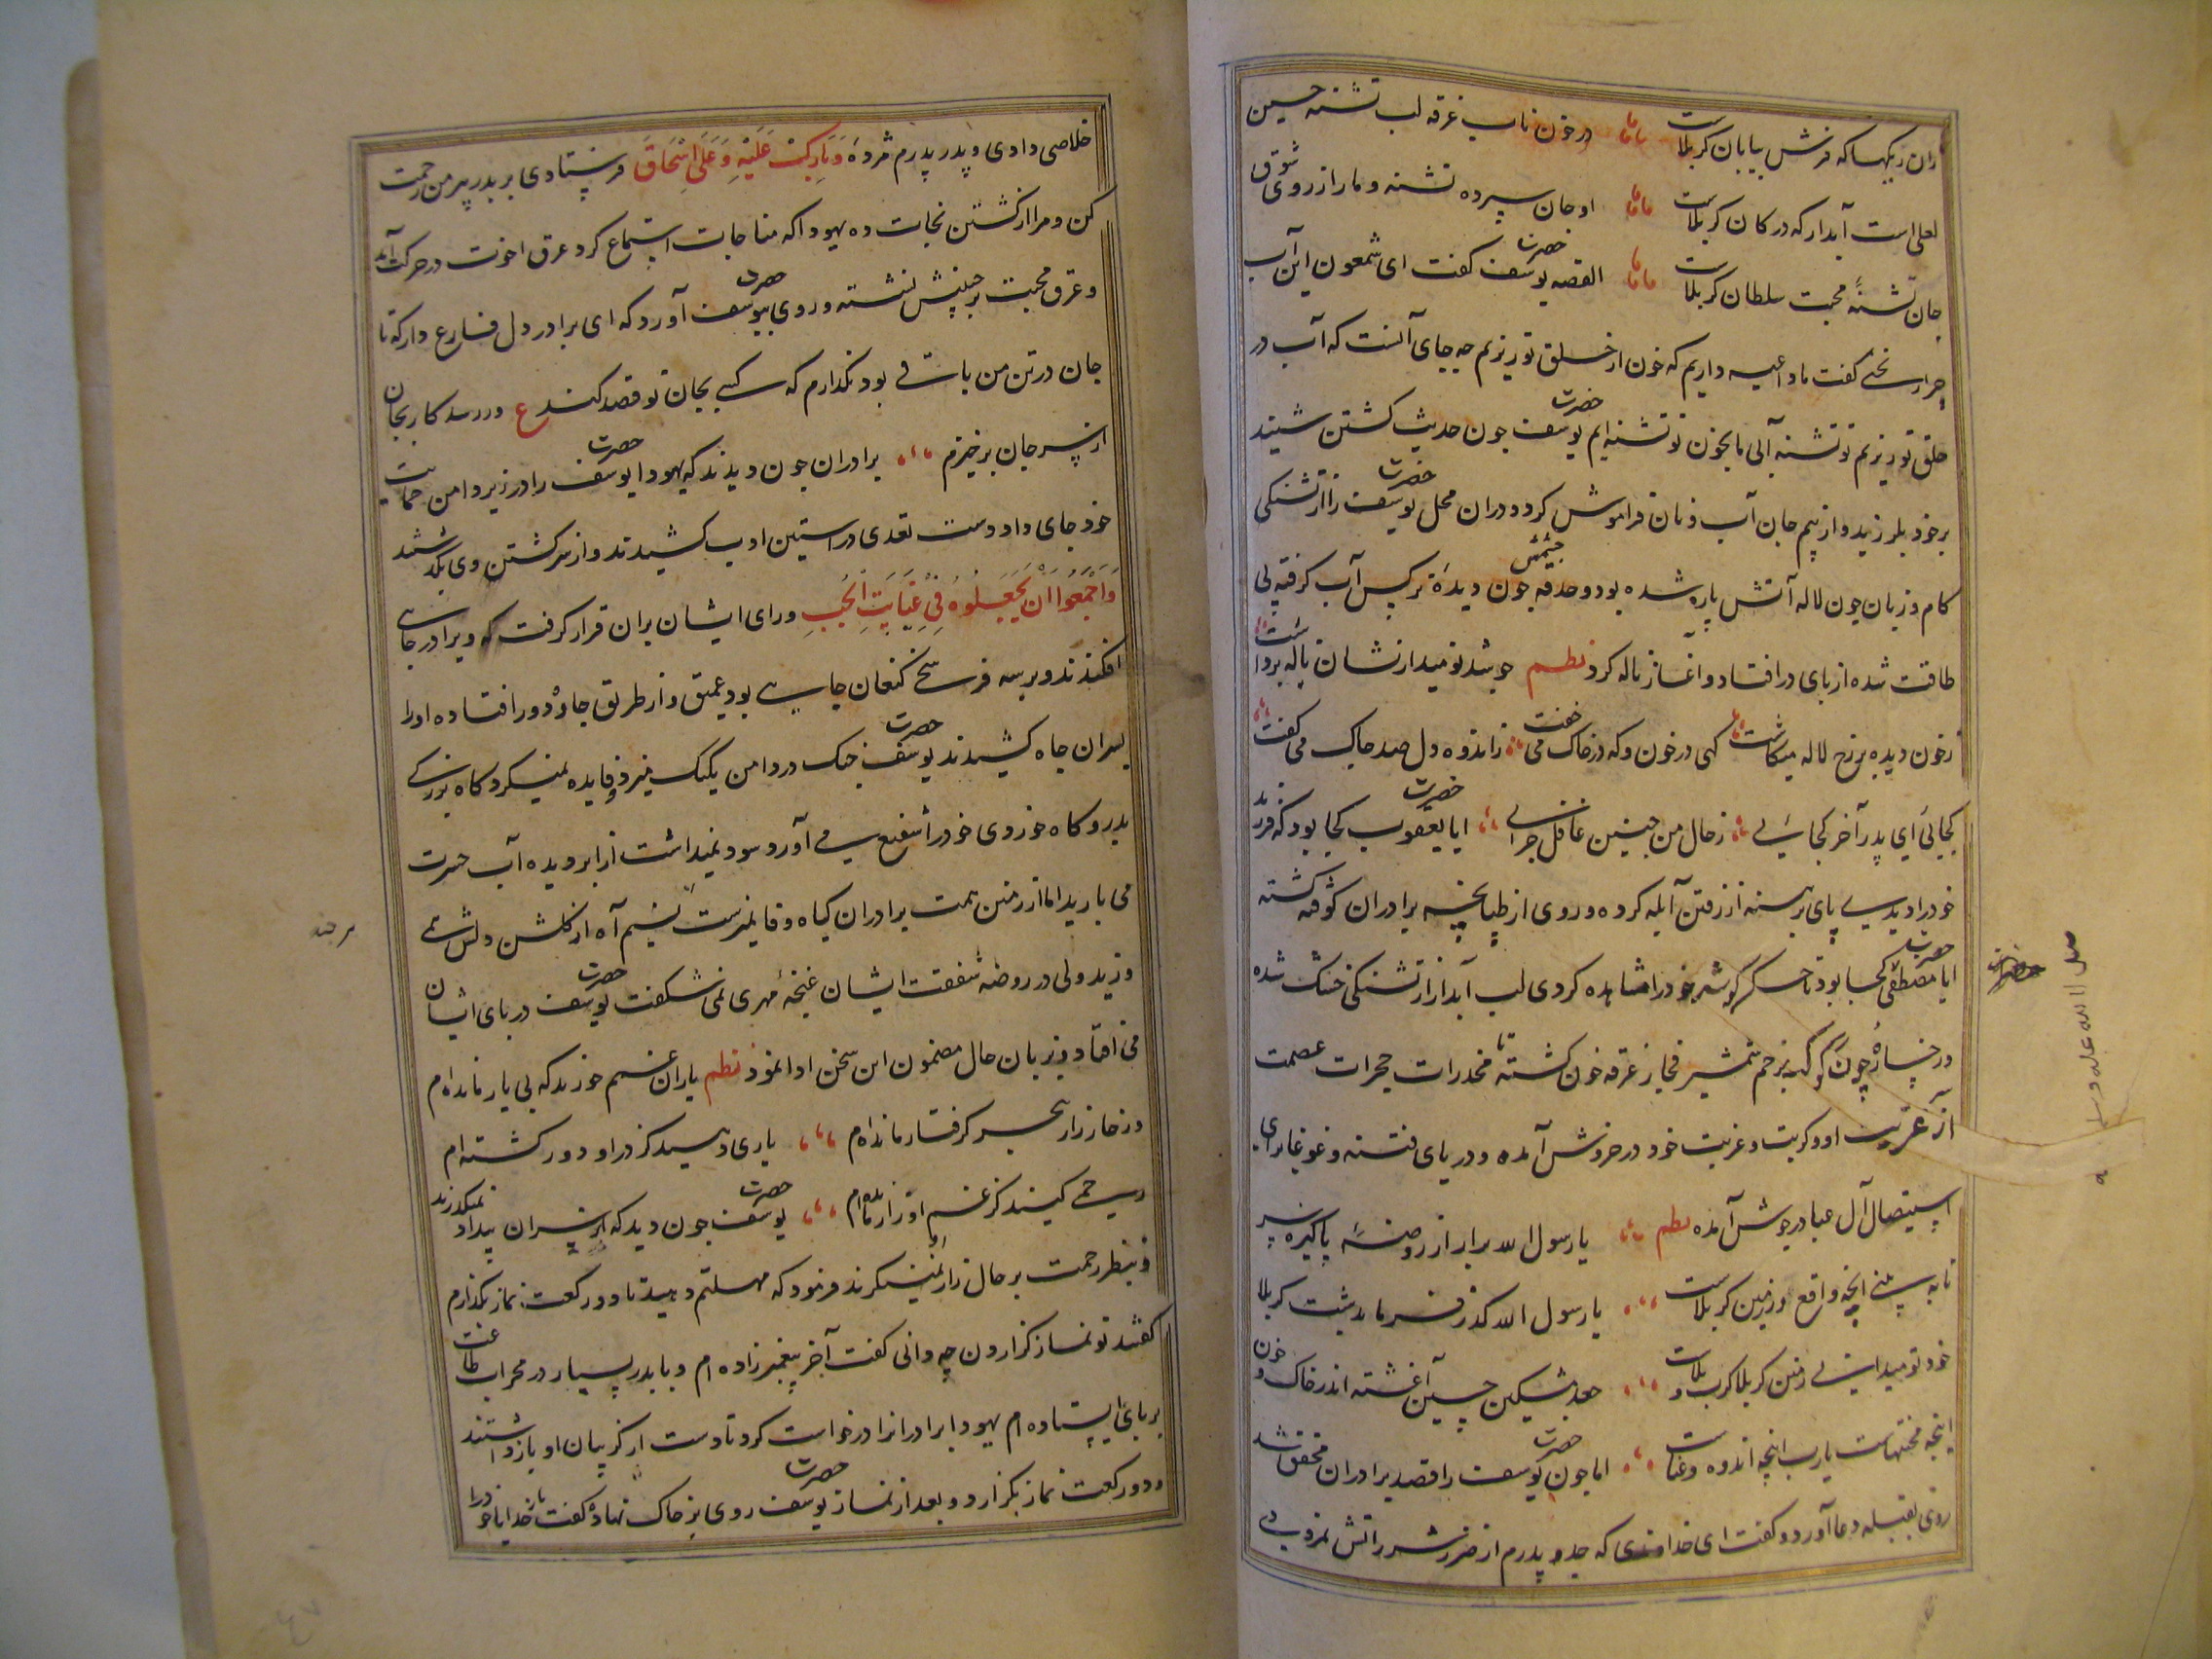 زان ریکها که فرش بیابان کربلاست در خون ناب غرقه لب تشنه حسین
لعلی است آبدار که در کان کربلاست او جان سپرده تشنه و ما را ز روی شوق
جان تشنهٔ محبت سلطان کربلاست القصه حضرت یوسف کفت ای شمعون این آب
چرا ریختی کفت ما داعیه داریم که خون از خلق تو ریزیم چه جای آنست که آب در
حلق تو ریزیم تو تشنه آبی ما بخون تو تشنه ایم حضرت یوسف چون حدیث کشتن شنید
برخود بلرزید و از بیم جان آب و نان فراموش کرد و دران محل حضرت یوسف را از تشنکی
کام و زبان چون لاله آتش پاره شده بود و حدقه چشمش چون دیدهٔ نرکس آب کرفته بی
طاقت شده از پای در افتاد و آغاز ناله کرد نظم چو شد نومید ازنشان ناله برداشت
زخون دیده بر رخ لاله میکاشت کهی در خون و که در خاک می خفت ز اندوه دل صد چاک می کفت
کجائی ای پدر آخر کجائی ز حال من چنین غافل چرائی ایا حضرت یعقوب کجا بود که فرزند
خود را دیدی پای برهنه از رفتن آبله کرده و روی از طپانچه برادران کوفته کشته
ایا حضرت مصطفی کجا بود تا جکر کوشه خود را مشاهده کردی لب آبدار از تشنکی خشک شده
و رخساره چون بزخم شمشیر فجار غرقه خون کشته تا مخدرات حجرات عصمت
از غربت او و کربت و غربت خود در خروش آمده و دریای فتنه و غوغا برای
استیصال آل عبا در جوش آمده نظم یا رسول الله برار از روضهٔ پاکیزه سر
تا به بینی آنچه واقع در زمین کربلاست یا رسول الله کذر فرما بدشت کربلا
خود تو میدانی زمین کربلا کرب و بلاست جعد مشکین حسین آغشته اندر خاک و خون
اینچه محنتهاست یارب اینچه اندوه و عناست اما چون حضرت یوسف را قصد برادران محقق شد
روی بقبله دعا آورد و کفت ای خداوندی که جد پدرم از ضرر شرر آتش نمرودی
حضرت
صلی الله علیه و سلم
خلاصی دادی و پدر پدرم مژدهٔ وَبَارَكْتُ عَلَيْهِ وَعَلَى إِسْحَاقَ فرستادی بر پدر پیر من رحمت
کن و مرا از کشتن نجات ده یهودا که مناجات استماع کرد عرق اخوت در حرکت آمد
و عرق محبت بر جبینش نشسته و روی بحضرت یوسف آورد که ای برادر دل فارغ دار که تا
جان در تن من باقی بود نکذارم که کسی بجان تو قصد کند ع ور رسد کار بجان
از سر جان برخیزم برادران چون دیدند که یهودا حضرت یوسف را در زیر دامن حمایت
خود جای داد دست تعدی در استین ادب کشیدند و از سر کشتن وی بکذشتند
وَأَجْمَعُوا أَنْ يَجْعَلُوهُ فِي غَيَابَتِ الْجُبِّ و رای ایشان بران قرار کرفت که ویرا در چاهی
افکنند و بر سه فرسخ کنعان چاهی بود عمیق و از طریق جاده دور افتاده او را
بسران چاه کشیدند حضرت یوسف چنک در دامن یکیک میزد و فایده نمیکرد کاه بزرکی
پدر و کاه خوردی خود را شفیع می آورد سود نمیداشت از ابر دیده آب حسرت
می بارید اما از زمین همت برادران کیاه وفا نمیرست نسیم آه از کلشن دلش می
وزید ولی در روضه شفقت ایشان غنچهٔ مهری نمی شکفت حضرت یوسف در پای ایشان
می افتاد و بزبان حال مضمون این سخن ادا نمود نظم یاران غمم خورید که بی یار مانده ام
در خارزار هجر کرفتار مانده ام یاری دهید کز در او دور کشته ام
رحمی کنید کز غم او زار مانده ام حضرت یوسف چون دید که از سر آن بیداد نمیکذرند
و بنظر رحمت بر حال زار او نمینکرند فرمود که مهلتم دهید تا دو رکعت نماز بکذارم
کفتند تو نماز کزاردن چه دانی کفت آخر پیغمبرزاده ام و با پدر بسیار در محراب طاعت
بر پای ایستاده ام یهودا برادرانرا درخواست کرد تا دست از کریبان او باز داشتند
و دو رکعت نماز بکزارد و بعد از نماز حضرت یوسف روی بر خاک نهاد و کفت بار خدایا خود را
هر چند